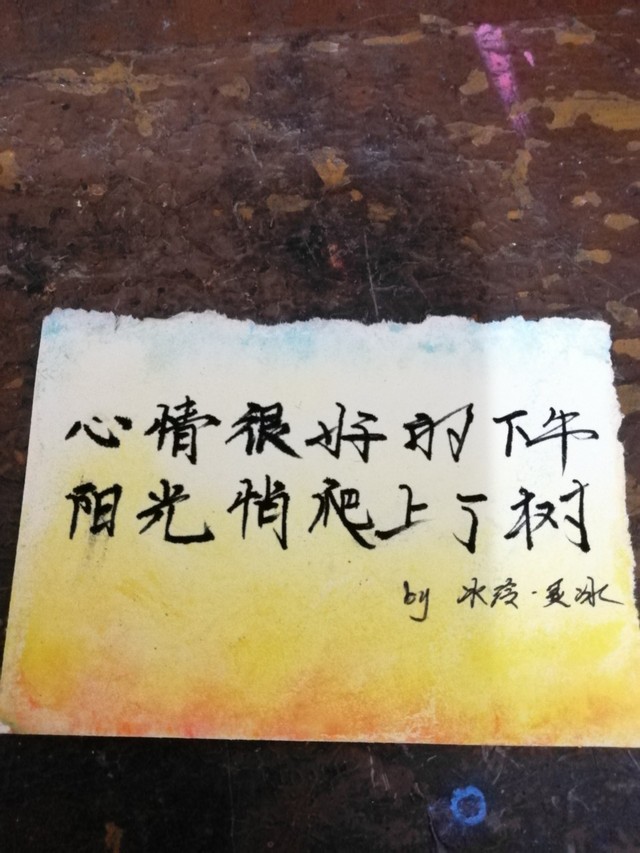 心情很好的下午
阳光悄爬上了树
by 冰玲·夏冰